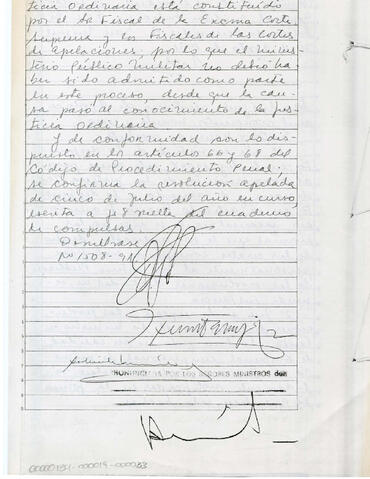 ticia Ordinaria está constituido
por el Sr Fiscal de la Excma Corte
suprema y los Fiscales de las cortes
de apelaciones; por lo que el minis
terio Público militar no debió ha
ber sido admitido como parte
en este proceso, desde que la cau
sa pasó al conocimiento de la jus
ticia Ordinaria.
Y de conformidad con lo dis
puesto en los artículos 66 y 68 del
Código de Procedimiento Penal;
se confirma la resolución apelada
de cinco de julio del año en curso,
escrita a fs 8 vuelta del cuaderno
de compulsas.
Devuélvase
No 1508-91
PRONUNCIADA POR LOS SEÑORES MINISTROS